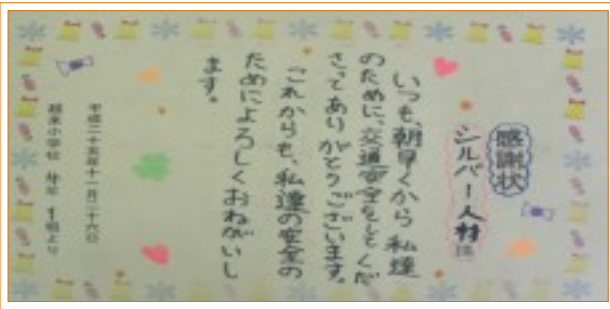 感謝状
シルバー人材
いつも、朝早くから私達
のために、交通安全をしてくだ
さってありがとうございます。
これからも、私達の安全の
ためによろしくおねがいし
ます。
平成二十五年十一月二十六日
小学校 年 1組より